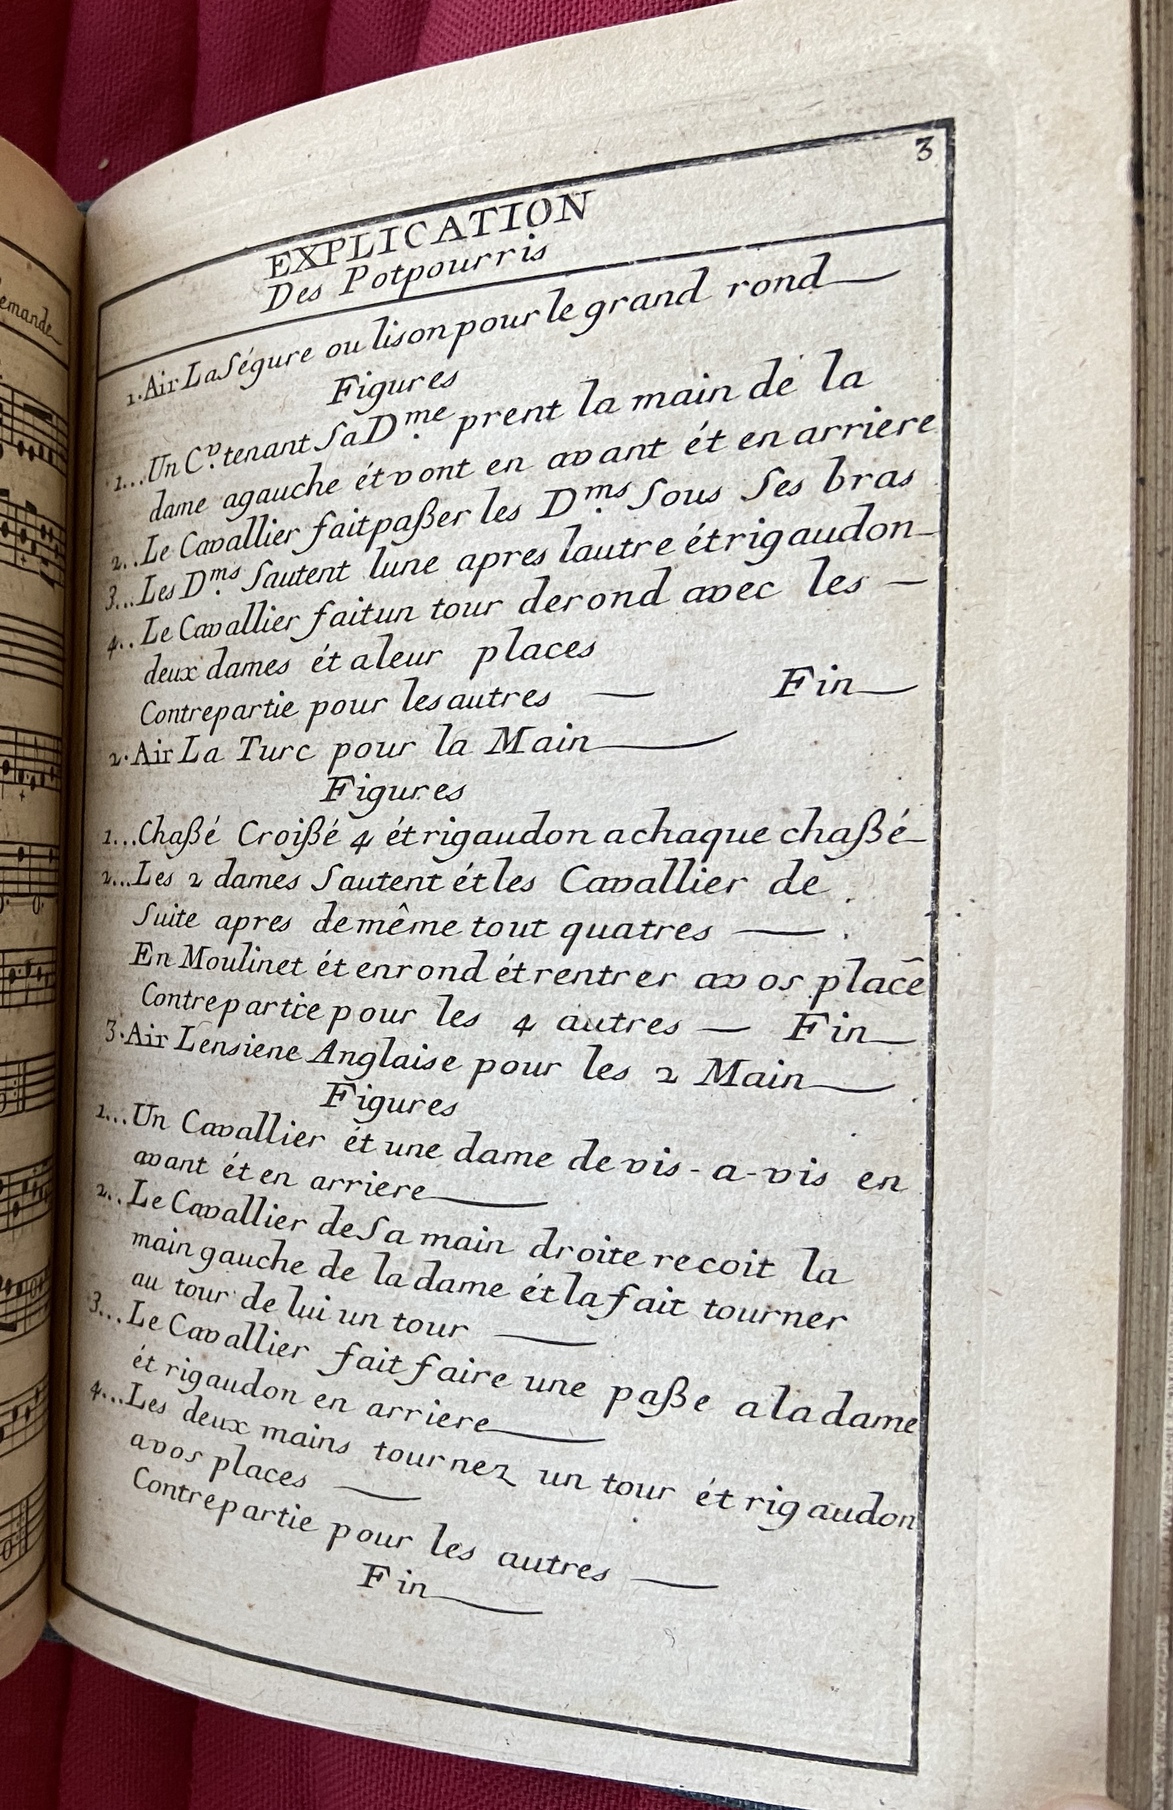 emande
3
EXPLICATION
Des Potpourris
1. Air La Ségure ou lison pour le grand rond
Figures
1... Un C.r tenant Sa D.me prent la main de la
dame agauche ét vont en avant ét en arriere
2.. Le Cavallier fait paßer les D.ms Sous Ses bras
3... Les D.ms Sautent lune apres lautre ét rigaudon
4.. Le Cavallier fait un tour de rond avec les —
deux dames ét a leur places
Contrepartie pour les autres — Fin
2. Air La Turc pour la Main
Figures
1... Chaßé Croißé 4 ét rigaudon a chaque chaßé
2... Les 2 dames Sautent ét les Cavallier de
Suite apres de même tout quatres —
En Moulinet ét en rond ét rentrer a vos place
Contrepartie pour les 4 autres — Fin
3. Air Lensiene Anglaise pour les 2 Main
Figures
1... Un Cavallier ét une dame de vis-a-vis en
avant ét en arriere
2.. Le Cavallier de Sa main droite recoit la
main gauche de la dame ét la fait tourner
au tour de lui un tour —
3... Le Cavallier fait faire une paße a la dame
ét rigaudon en arriere
4... Les deux mains tournez un tour ét rigaudon
a vos places —
Contrepartie pour les autres —
Fin